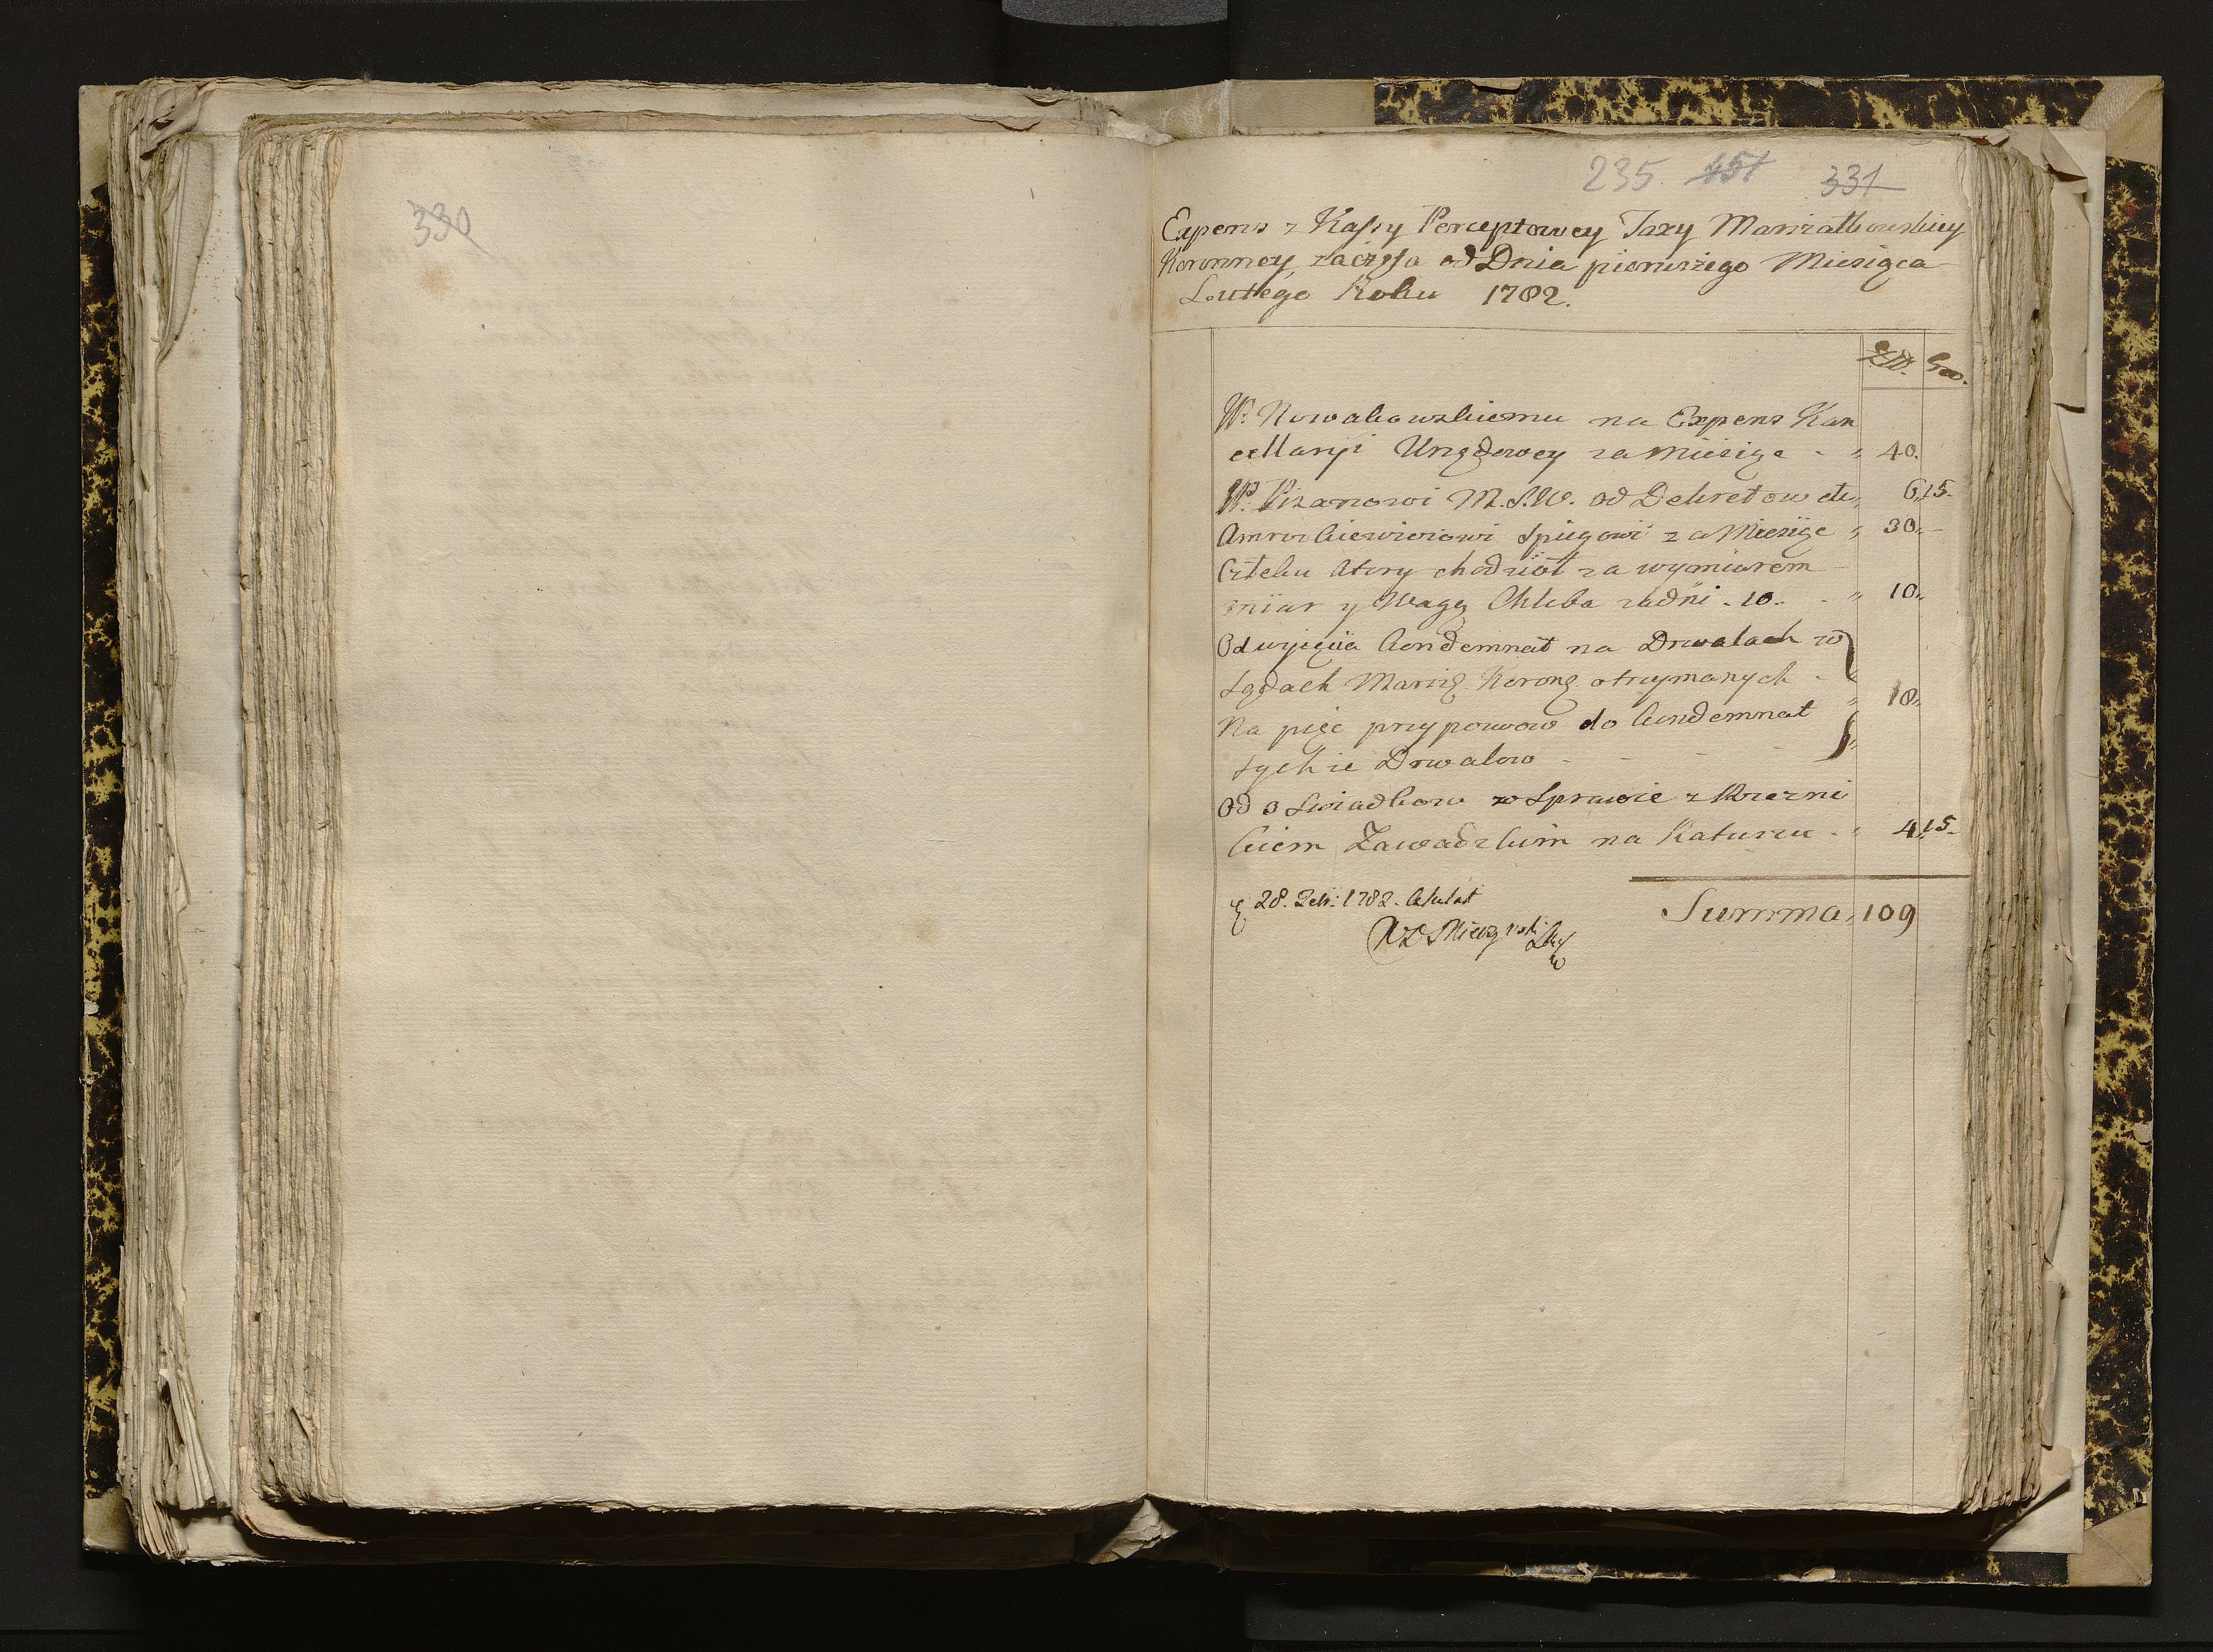 330
235. 451 331
Expens z Kassy Perceptowey Taxy Marszałkowskiey
Koronney, zaczęta od Dnia pierwszego Miesiąca
Lutego Roku 1782.
Zł. Gro.
W. Nowakowskiemu na Expens Kan
cellaryi Urzędowey za Miesiąc - " 40.
W. Pisarzowi M.S.W. od Dekretow etc " 6,, 15.
Amrozkiewiczowi Szpiegowi za Miesiąc " 30,, -
Człeku ktory chodził za wymiarem
miar y Wagą Chleba za dni . 10. - " 10,,
Od wyjęcia Kondemnat na Drwalach w
Sądach Marszł Koronę otrzymanych - "
Na pięc przypozwow do Kondemnat " 18,,
tychże Drwalow - - - "
Od 3 Swiadkow w Sprawie z Wozni
kiem Zawadzkim na Ratuszu - " 4,, 15.
Summa,, 109
28. Febr: 1782.